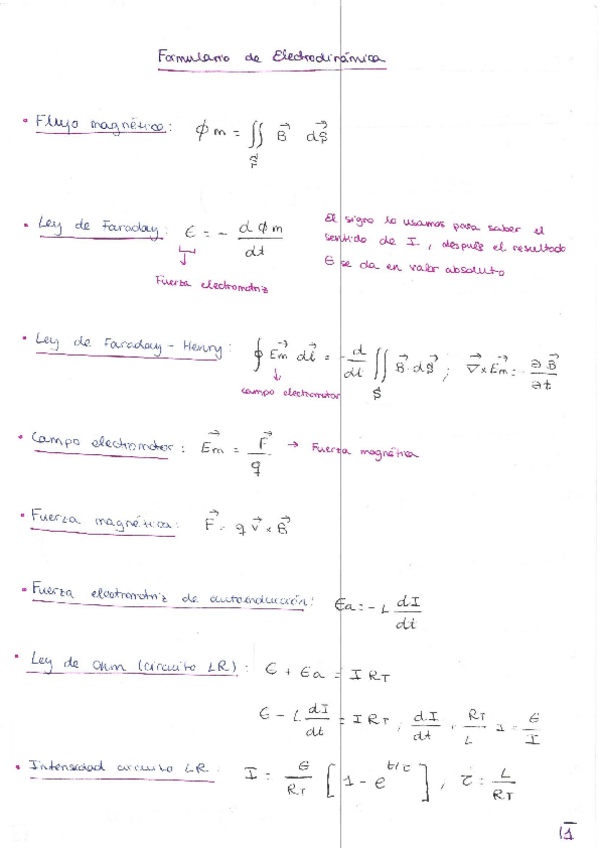 Formulario de Electrodinámica
• Flujo magnético: ϕm = ∬_S B⃗ dS⃗
• Ley de Faraday: ε = - dϕm/dt
Fuerza electromotriz
El signo lo usamos para saber el
sentido de I, después el resultado
ε se da en valor absoluto
• Ley de Faraday - Henry: ∮ Em⃗ dl⃗ = - d/dt ∬_S B⃗ · dS⃗ ; ∇⃗ × Em⃗ = - ∂B⃗/∂t
campo electromotor
• Campo electromotor: Em⃗ = F⃗/q → Fuerza magnética
• Fuerza magnética: F⃗ = q v⃗ × B⃗
• Fuerza electromotriz de autoinducción: εa = - L dI/dt
• Ley de Ohm (circuito LR): ε + εa = I RT
ε - L dI/dt = I RT ; dI/dt + RT/L I = ε/I
• Intensidad circuito LR: I = ε/RT [1 - e^t/τ], τ = L/RT
(1